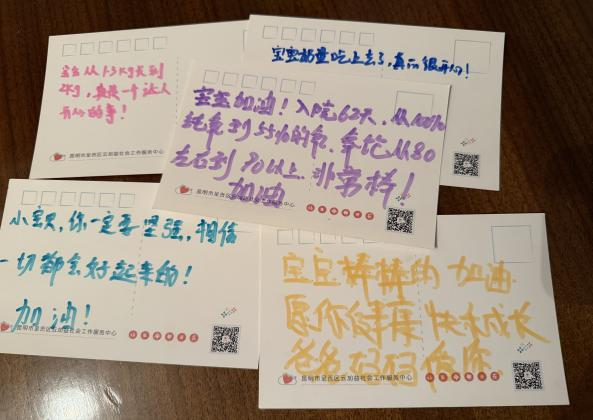 宝宝从1.3kg长到
2kg，真是一个让人
开心的事！
昆明市呈贡区云加益社会工作服务中心
宝宝奶量吃上去了，真的很开心！
宝宝加油！入院62天，从100%
纯氧到55%的氧，氧饱从80
左右到90以上，非常棒！
加油
昆明市呈贡区云加益社会工作服务中心
小宝贝，你一定要坚强，相信
一切都会好起来的！
加油！
昆明市呈贡区云加益社会工作服务中心
宝宝棒棒的 加油
愿你健康 快乐成长
爸爸妈妈
昆明市呈贡区云加益社会工作服务中心